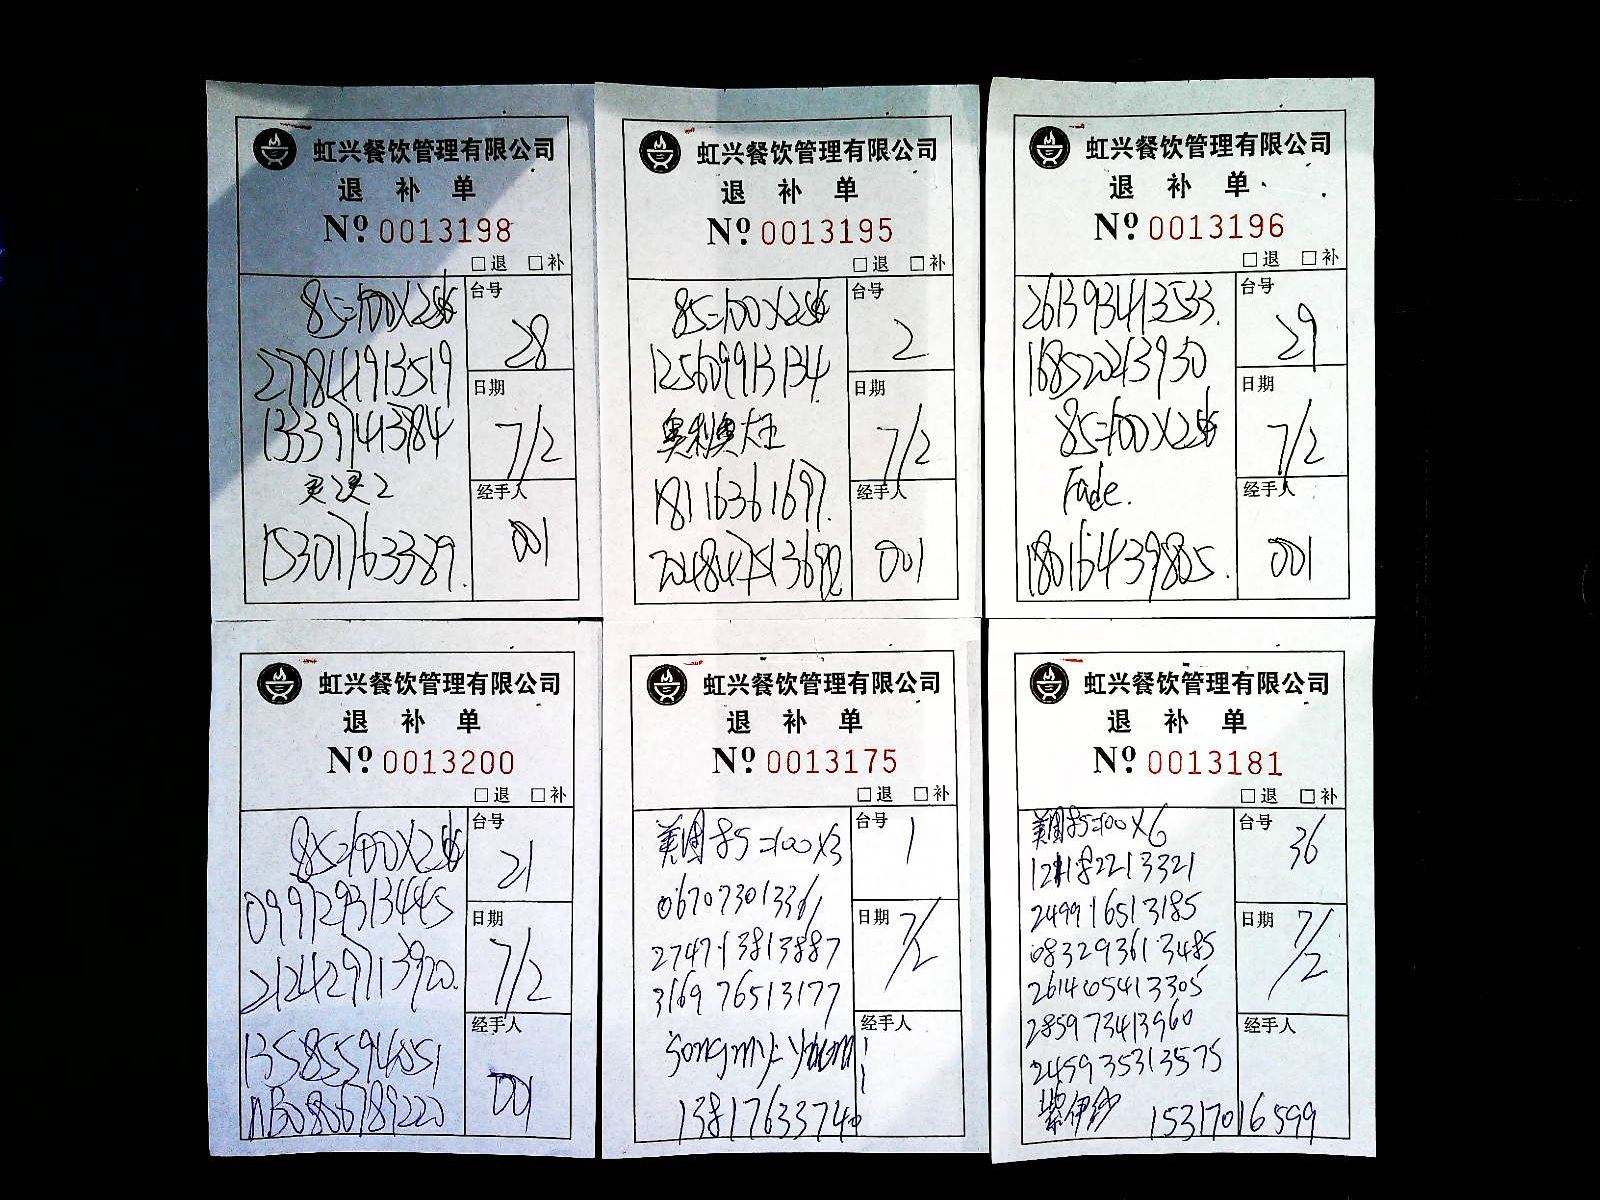 虹兴餐饮管理有限公司
退 补 单
Nº 0013198
□退 □补
85=100X2
台号
28
277841913519
日期
7/2
133391413784
灵灵2
经手人
001
15301763389.
虹兴餐饮管理有限公司
退 补 单
Nº 0013195
□退 □补
85=100X2
台号
2
125609913134
日期
7/2
奥利奥大王
18116361697.
经手人
001
虹兴餐饮管理有限公司
退 补 单
Nº 0013196
□退 □补
261393413533.
台号
29
168520213930
日期
7/2
85=100X2
Fade.
经手人
001
18016439805.
虹兴餐饮管理有限公司
退 补 单
Nº 0013200
□退 □补
85=100X2
台号
21
099129313445
日期
7/2
212429713920.
经手人
001
13585594851
虹兴餐饮管理有限公司
退 补 单
Nº 0013175
□退 □补
美团85=100X3
台号
1
067073013361
日期
7/2
274713813887
316976513177
经手人
13817633740
虹兴餐饮管理有限公司
退 补 单
Nº 0013181
□退 □补
美团85=100X6
台号
36
121182213321
249916513185
日期
7/2
083293613485
261465413305
285973413960
经手人
245935313575
紫伊纱 15317016599